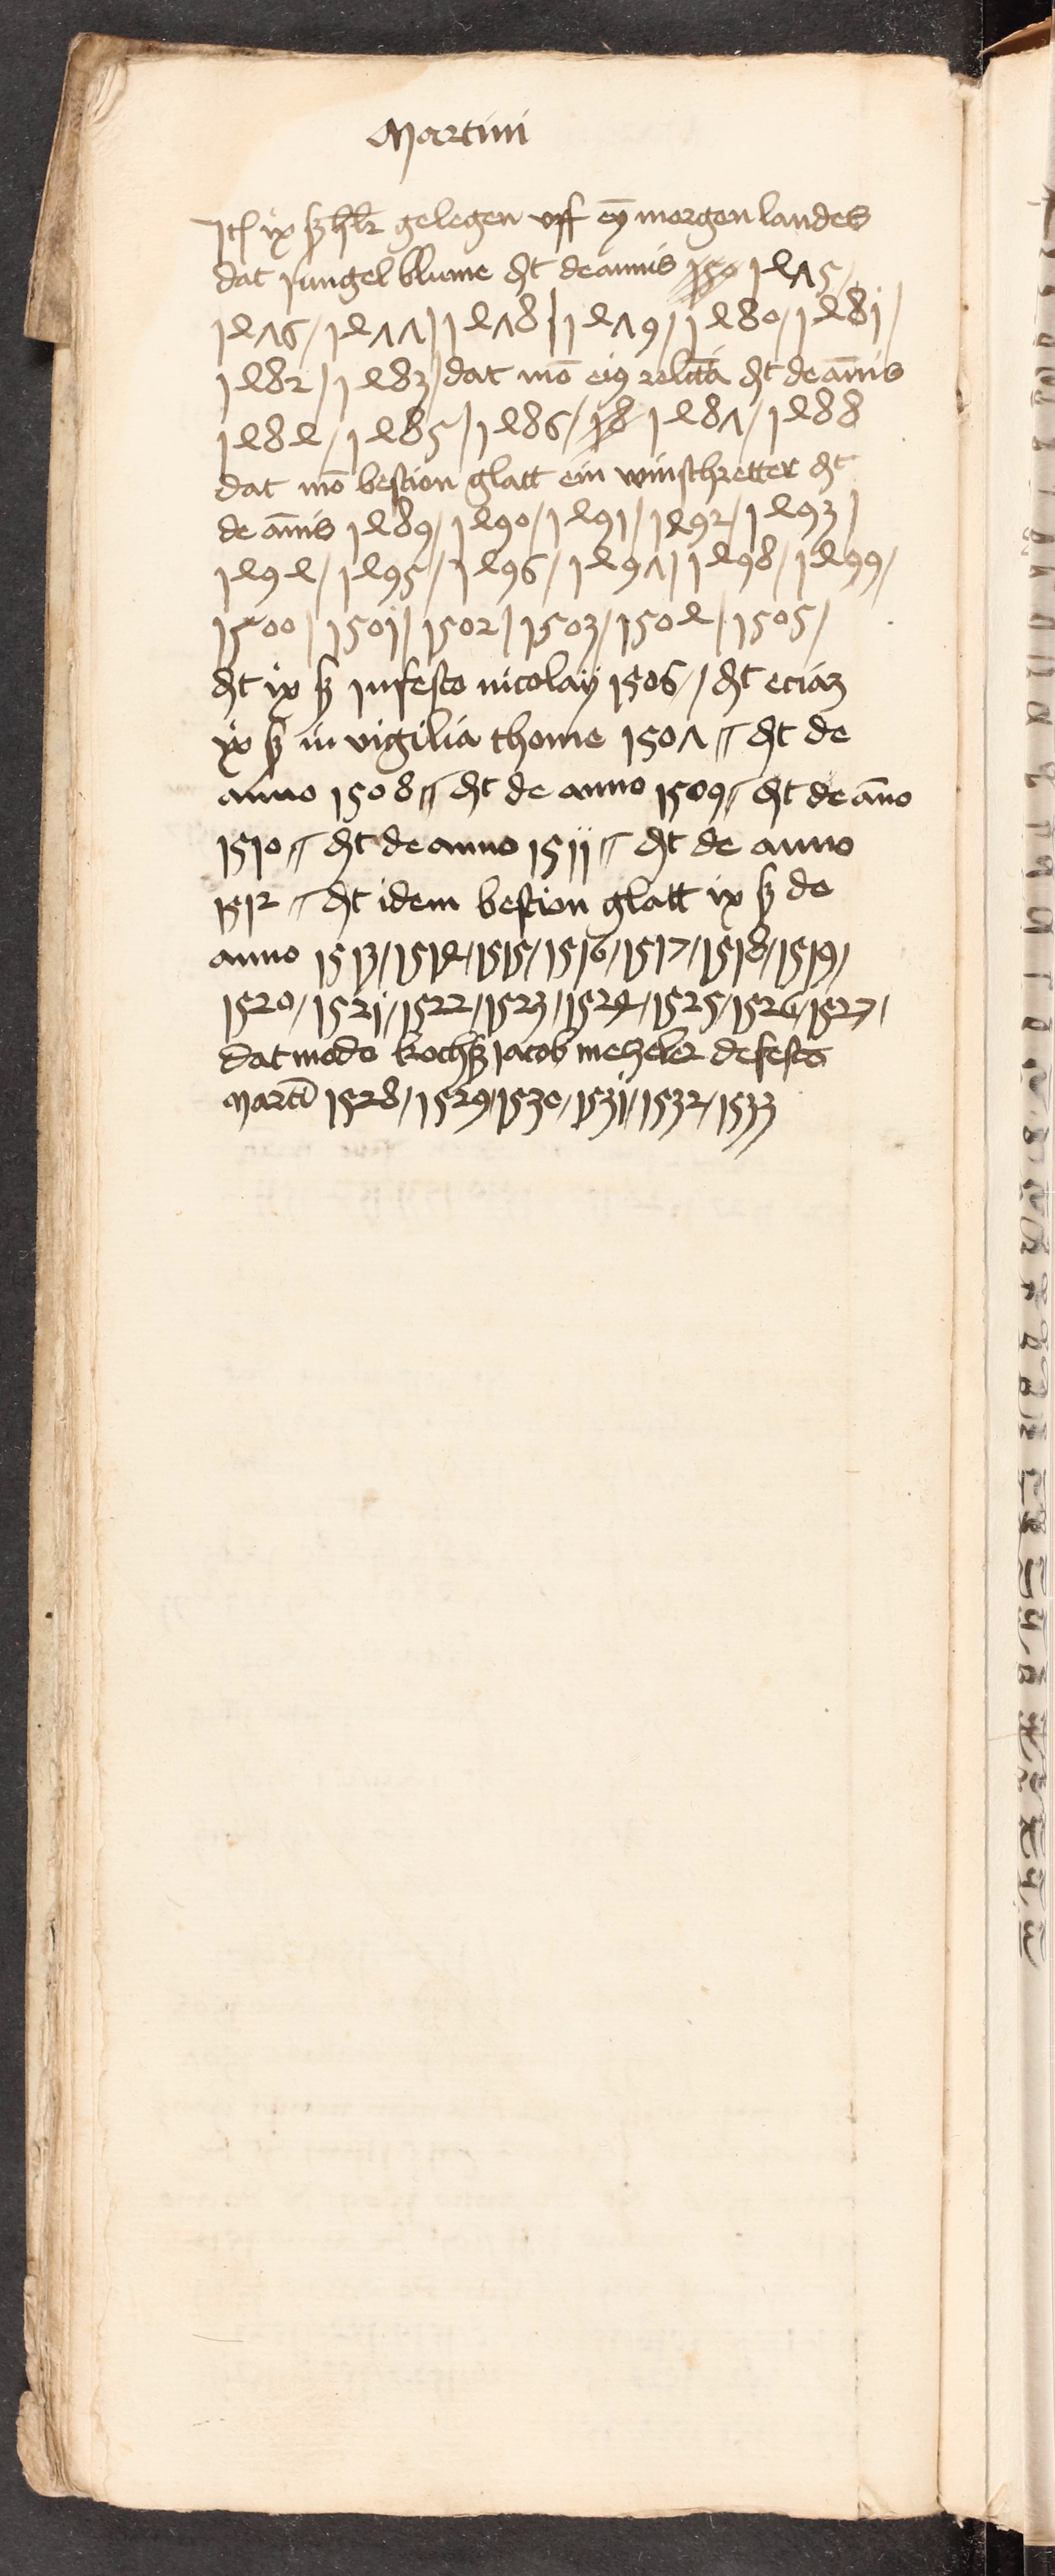 Martini
Jt ix ß hlr gelegen vff ey morgen landes
dat Jungel blume dt de annis 1475
1476 / 1477 / 1478 / 1479 / 1480 / 1481 /
1482 / 1483 / dat mo eiꝰ relicta dt de annis
1484 / 1485 / 1486 / 1487 / 1488
dat mo bestion glatt ein winschretter dt
de annis 1489 / 1490 / 1491 / 1492 / 1493 /
1494 / 1495 / 1496 / 1497 / 1498 / 1499 /
1500 / 1501 / 1502 / 1503 / 1504 / 1505 /
dt ix ß in festo nicolaij 1506 // dt eciam
ix ß in vigilia thome 1507 // dt de
anno 1508 // dt de anno 1509 // dt de ano
1510 // dt de anno 1511 // dt de anno
1512 // dt idem bestion glatt ix ß de
anno 1513 / 1514 / 1515 / 1516 / 1517 / 1518 / 1519 /
1520 / 1521 / 1522 / 1523 / 1524 / 1525 / 1526 / 1527 /
dat modo Jacob de festo
Martī 1528 / 1529 / 1530 / 1531 / 1532 / 1533